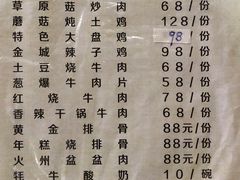 草原菇炒肉 68/份
蘑菇炖土鸡 128/份
特色大盘鸡 98/份
金城辣子鸡 98/份
土豆烧牛肉 68/份
葱爆牛肉片 58/份
红烧牛肉 78/份
香辣干锅牛肉 78/份
黄金排骨 88元/份
年糕烧排骨 88元/份
火州盆盆肉 88元/份
牦牛酸奶 10/碗